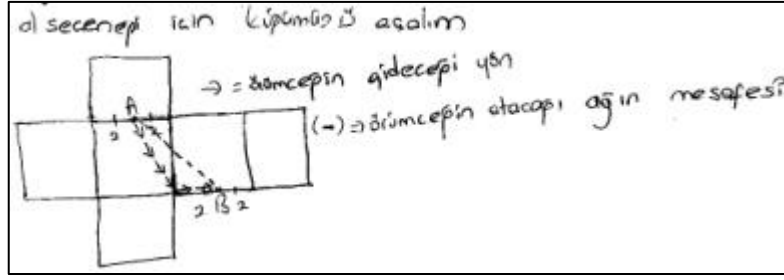 a) seceneği için küpümüzü açalım
→ = örümceğin gideceği yön
(-) => örümceğin atacağı ağın mesafesi?
A
2 2
2 B 2